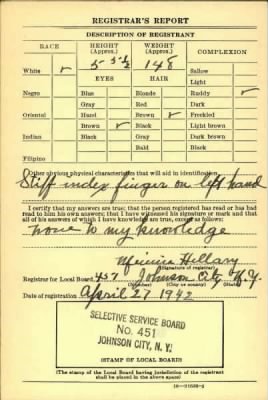 REGISTRAR'S REPORT
DESCRIPTION OF REGISTRANT
RACE HEIGHT (Approx.) WEIGHT (Approx.) COMPLEXION
5 5½ 148
White ✓ EYES HAIR Sallow
Light
Negro Blue Blonde Ruddy ✓
Gray Red Dark
Oriental Hazel Brown ✓ Freckled
Brown ✓ Black Light brown
Indian Black Gray Dark brown
Bald Black
Filipino
Other obvious physical characteristics that will aid in identification
Stiff index finger on left hand
I certify that my answers are true; that the person registered has read or has had
read to him his own answers; that I have witnessed his signature or mark and that
all of his answers of which I have knowledge are true, except as follows:
none to my knowledge
Hillary
(Signature of registrar)
Registrar for Local Board 457 Johnson City N.Y.
(Number) (City or county) (State)
Date of registration April 27 1942
SELECTIVE SERVICE BOARD
No. 451
JOHNSON CITY, N.Y.
(STAMP OF LOCAL BOARD)
(The stamp of the Local Board having jurisdiction of the registrant
shall be placed in the above space.)